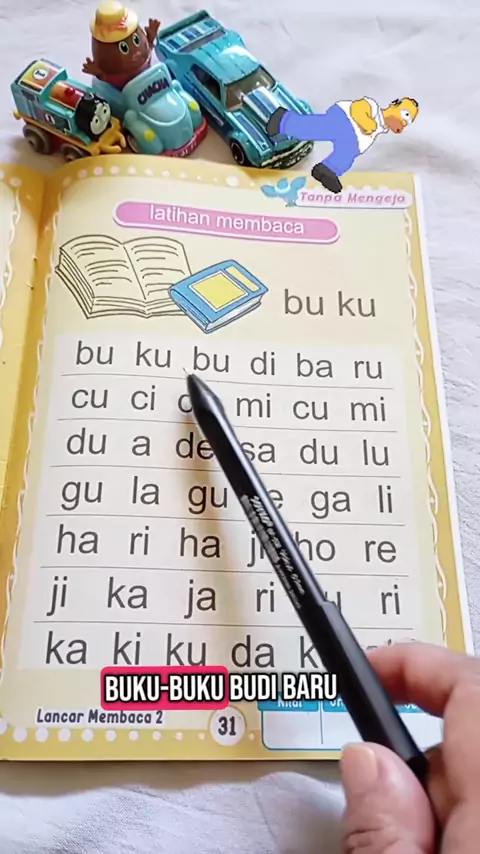 CHACHA
Tanpa Mengeja
latihan membaca
bu ku
bu ku bu di ba ru
cu ci mi cu mi
du a de sa du lu
gu la gu ga li
ha ri ha ji ho re
ji ka ja ri ri
ka ki ku da
BUKU-BUKU BUDI BARU
Lancar Membaca 2
31